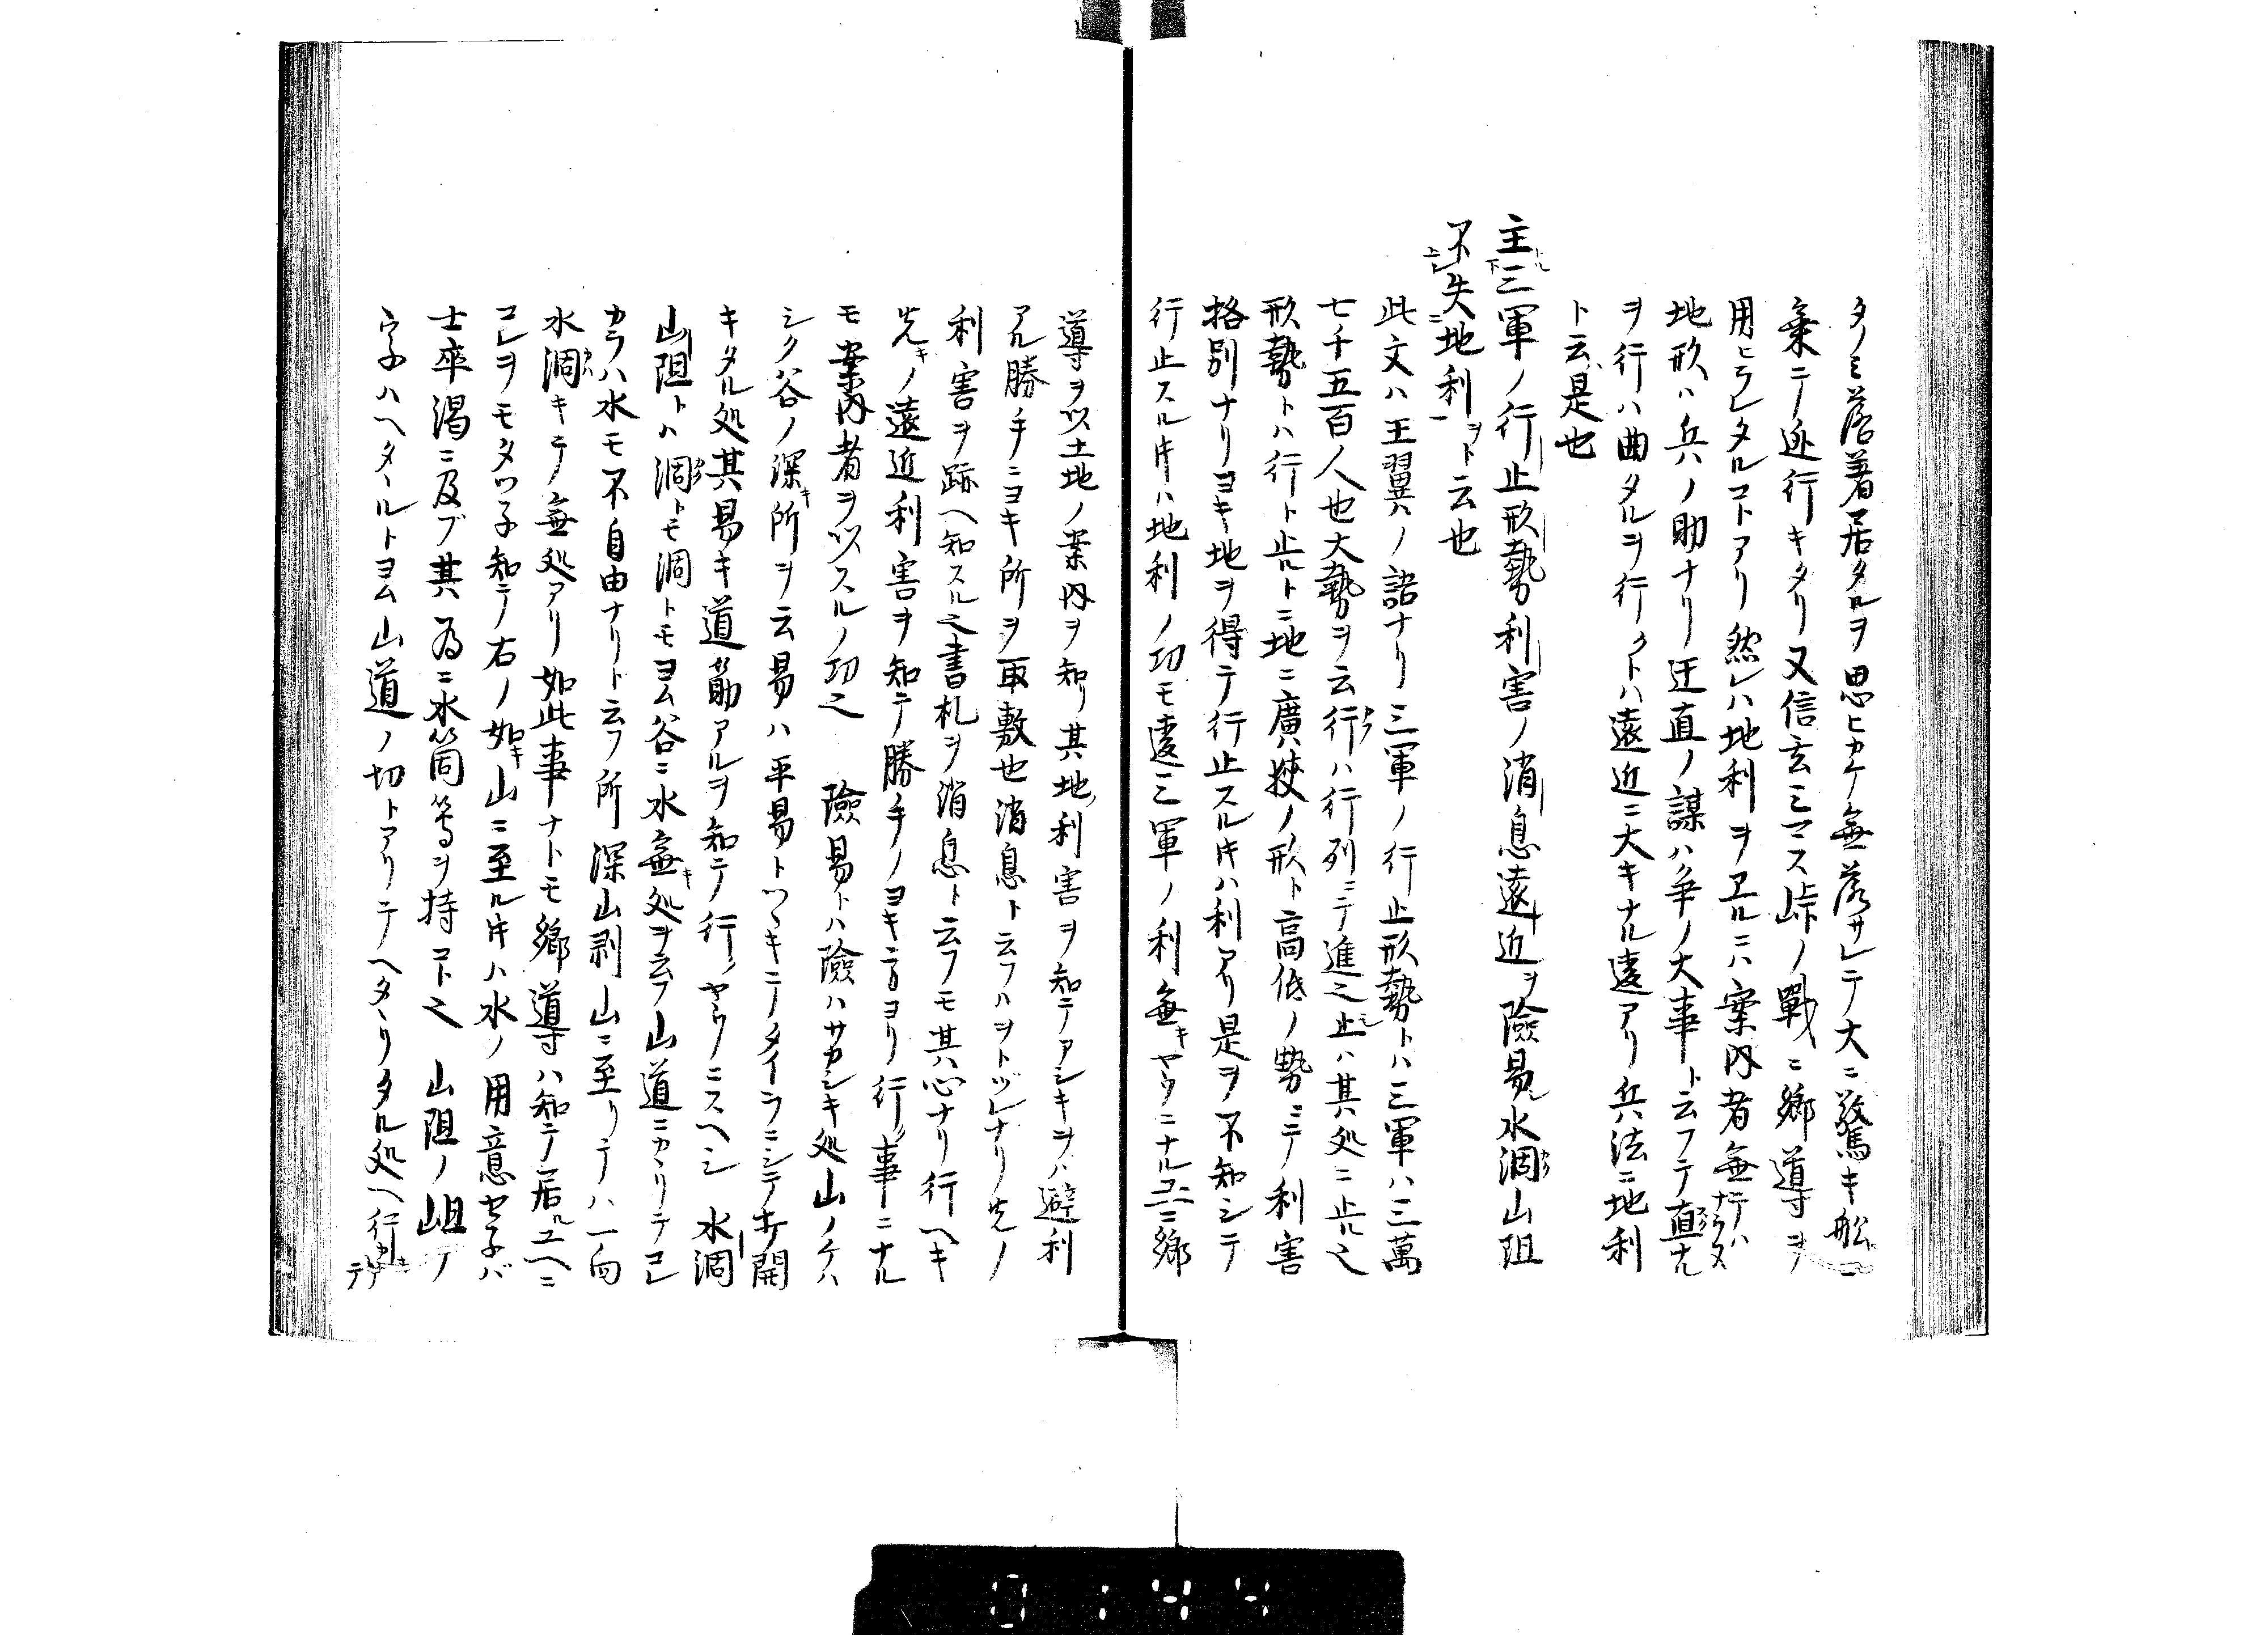 タノミ落著居タルヲ思ヒカケ無落サレテ大ニ驚キ船ニ
乗テ逃行キタリ又信玄ミマス峠ノ戰ニ郷導ヲ
用ヒラレタルコトアリ然レハ地利ヲヱルニハ案内者無テハナラヌ
地形ハ兵ノ助ナリ迂直ノ謀ハ争ノ大事ト云フテ直ナル
ヲ行ハ曲タルヲ行クトハ遠近ニ大キナル違アリ兵法ニ地利
ト云是也
主三軍ノ行止形勢利害ノ消息遠近ヲ險易水涸山阻
不失地利ヲト云也
此文ハ王翼ノ語ナリ三軍ノ行止形勢トハ三軍ハ三萬
七千五百人也大勢ヲ云行ハ行列ニテ進之止ハ其処ニ止ル之
形勢トハ行ト止ルトニ地ニ廣狹ノ形ト高低ノ勢ニテ利害
格別ナリヨキ地ヲ得テ行止スル時ハ利アリ是ヲ不知シテ
行止スル時ハ地利ノ功モ違三軍ノ利無キヤウニナルユヘニ郷
導ヲ以土地ノ案内ヲ知リ其地ノ利害ヲ知テアシキヲハ避利
アル勝手ニヨキ所ヲ取敷也消息ト云フハヲトヅレナリ先ノ
利害ヲ跡ヘ知スル之書札ヲ消息ト云フモ其心ナリ行ヘキ
先キノ遠近利害ヲ知テ勝手ノヨキ方ヨリ行事ニナル
モ案内者ヲ以スルノ功之 險易トハ險ハサカシキ処山ノケハ
シク谷ノ深キ所ヲ云易ハ平易トツヽキテタイラニシテ打開
キタル処其易キ道筋アルヲ知テ行ヤウニスヘシ 水涸
山阻トハ涸トモ涸トモヨム谷ニ水無キ処ヲ云フ山道ニカヽリテコレ
カラハ水モ不自由ナリト云フ所深山剥山ニ至リテハ一向
水涸キテ無処アリ如此事ナトモ郷導ハ知テ居ルユヘニ
コレヲモタツ子知テ右ノ如キ山ニ至ル時ハ水ノ用意セ子バ
士卒渇ニ及ブ其為ニ水筒等ヲ持コト之 山阻ノ岨ノ
字ハヘタヽルトヨム山道ノ切トアリテヘタヽリタル処ヘ行